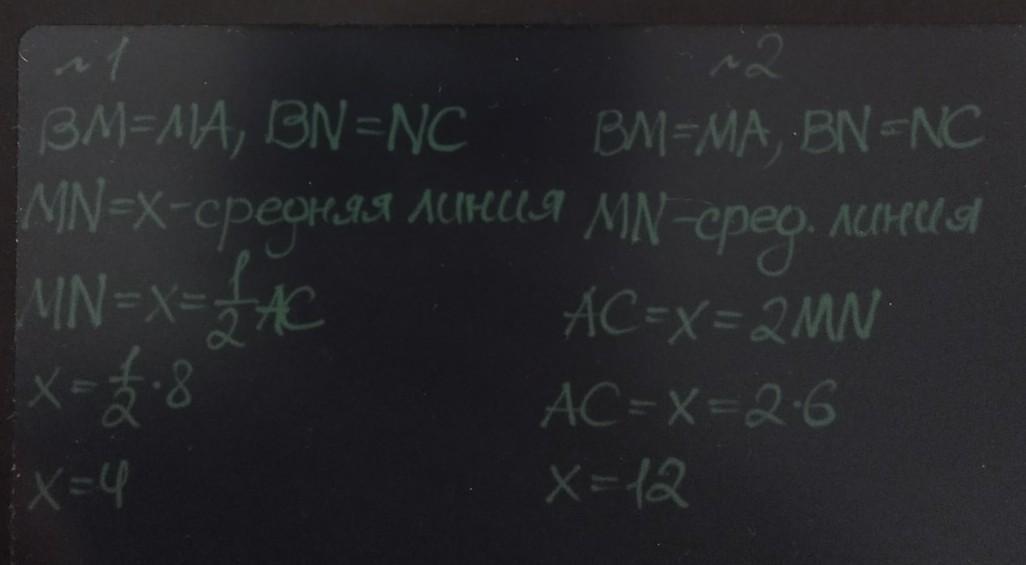 ~1
BM=MA, BN=NC
MN=x-средняя линия
MN=x=1/2 AC
x=1/2·8
x=4
~2
BM=MA, BN=NC
MN-сред. линия
AC=x=2MN
AC=x=2·6
x=12